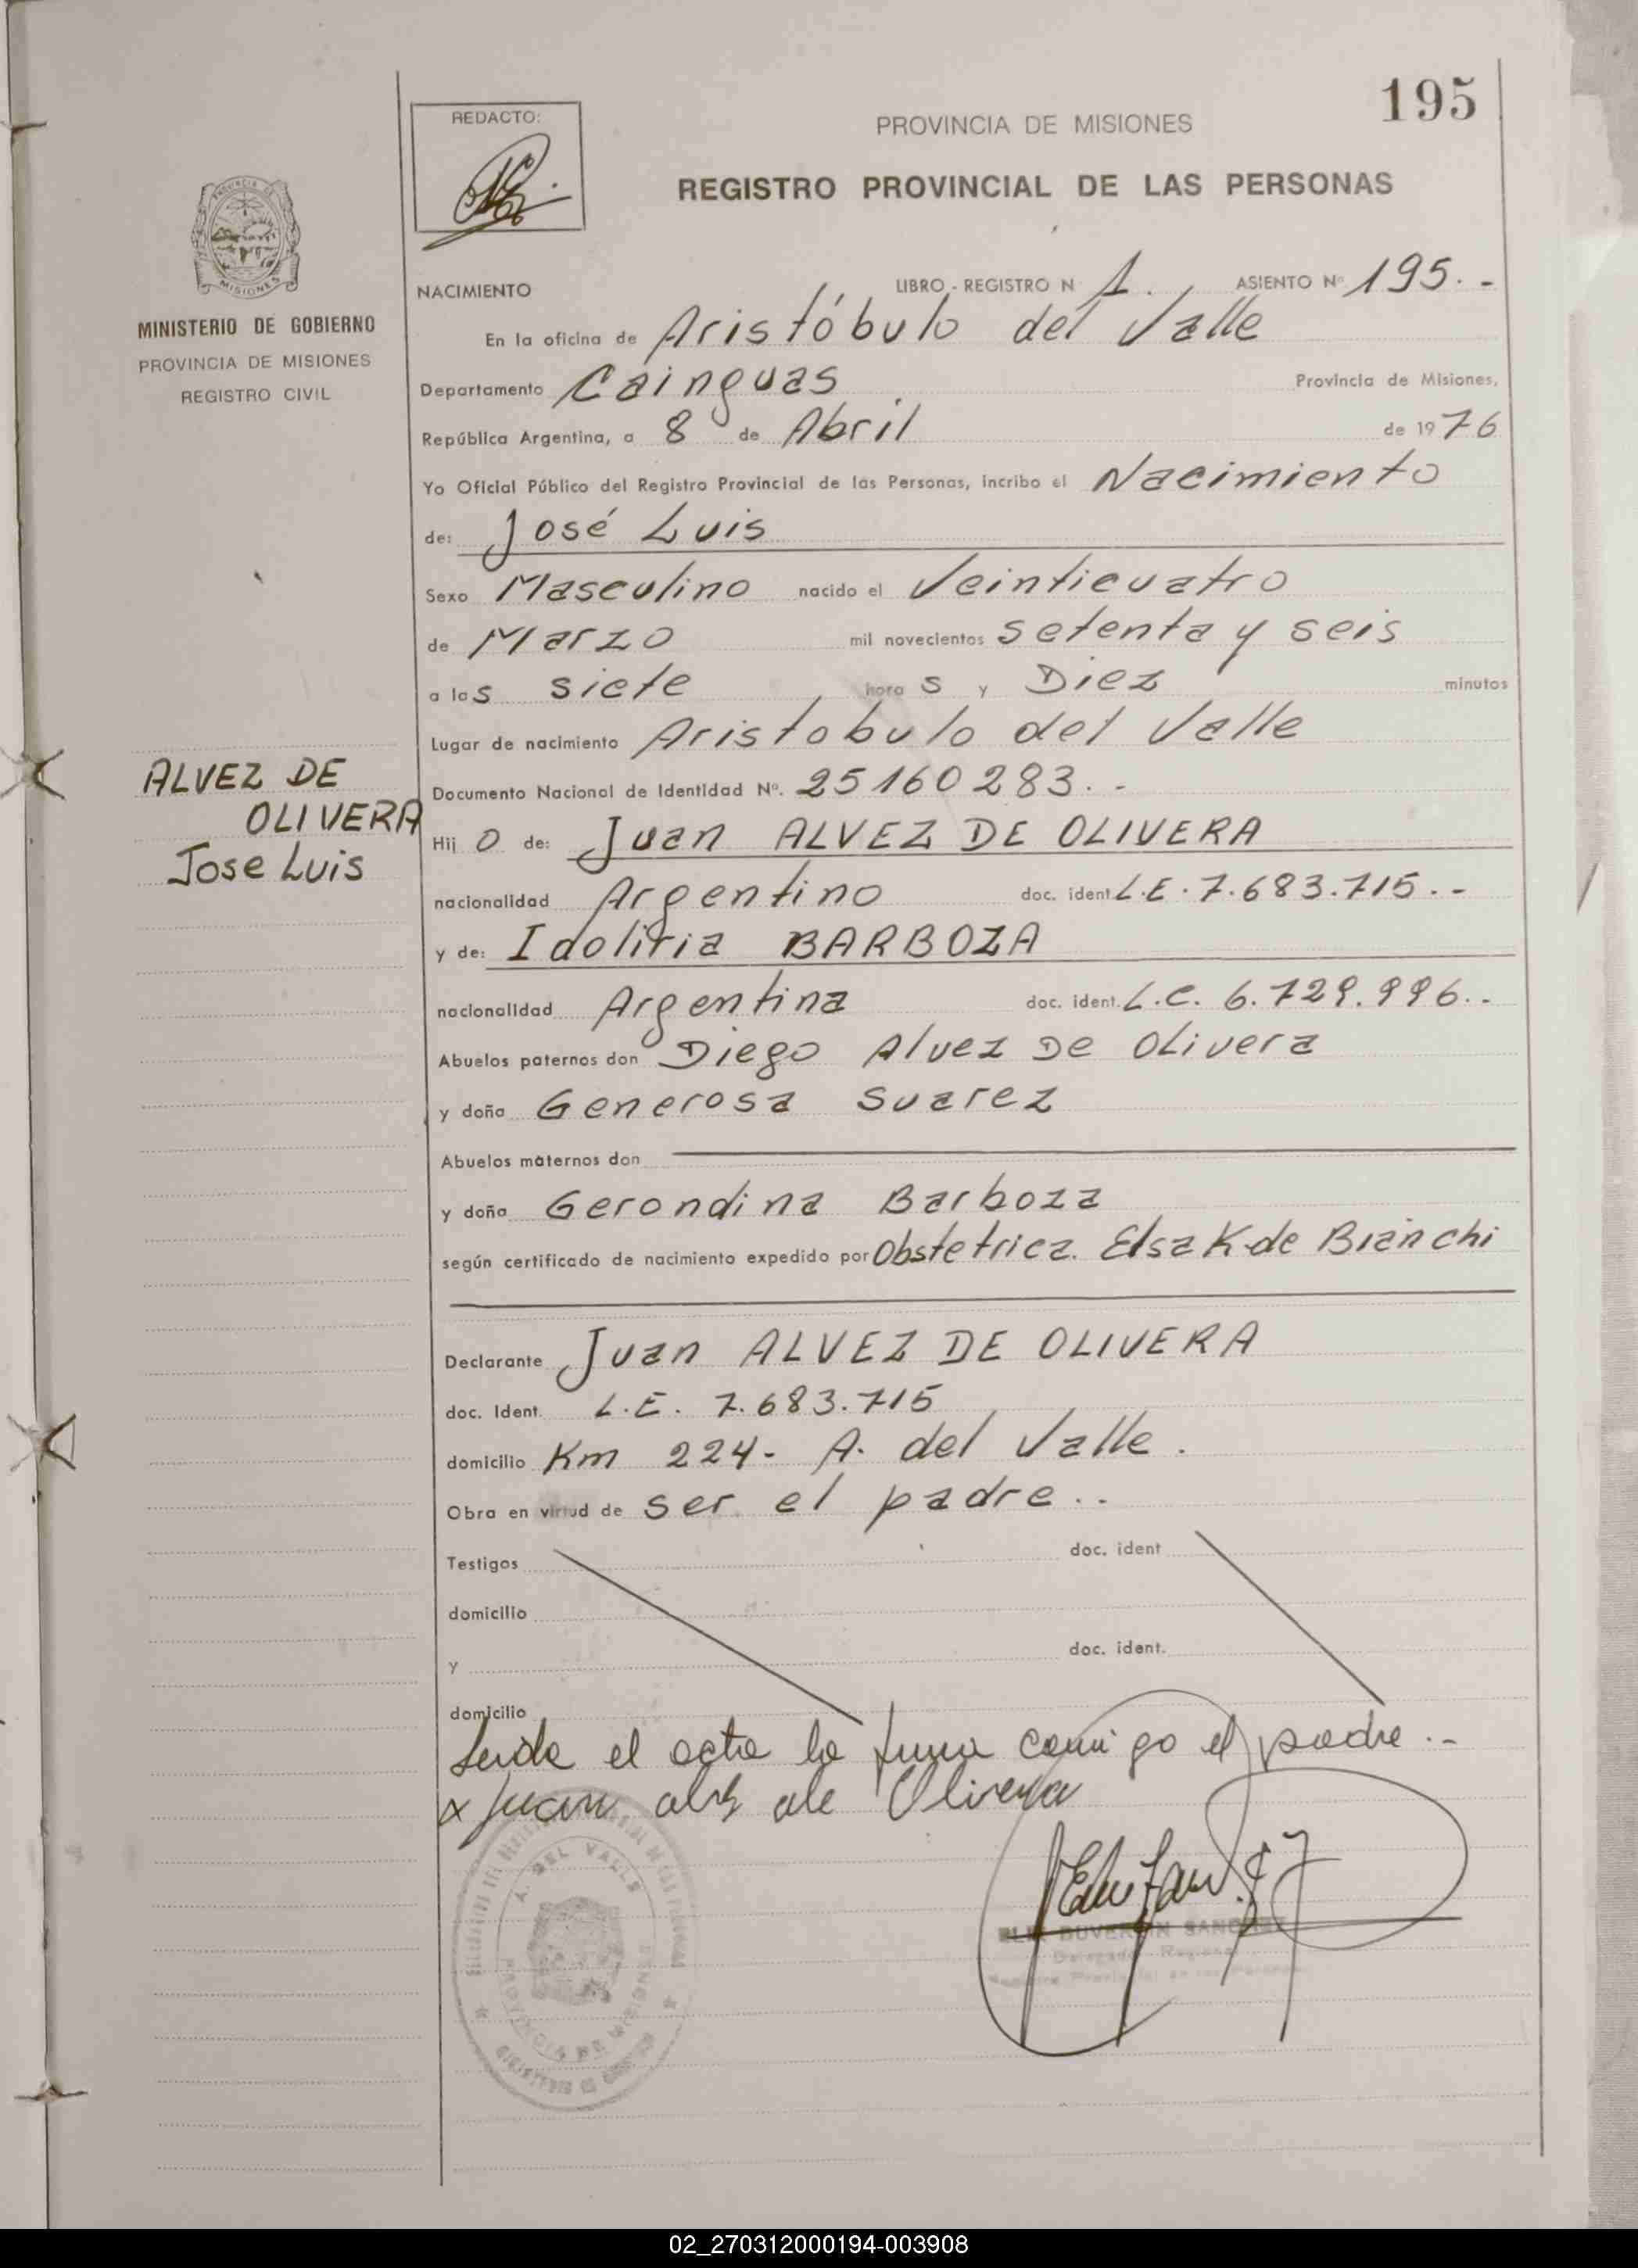 195
REDACTO:
PROVINCIA DE MISIONES
REGISTRO PROVINCIAL DE LAS PERSONAS
MISIONES
MINISTERIO DE GOBIERNO
PROVINCIA DE MISIONES
REGISTRO CIVIL
NACIMIENTO LIBRO - REGISTRO N 1. ASIENTO Nº 195.-
En la oficina de Aristóbulo del Valle
Departamento Cainguas Provincia de Misiones,
República Argentina, a 8 de Abril de 1976
Yo Oficial Público del Registro Provincial de las Personas, incribo el Nacimiento
de: José Luis
Sexo Masculino nacido el Veinticuatro
de Marzo mil novecientos setenta y seis
a las siete horas y Diez minutos
Lugar de nacimiento Aristobulo del Valle
ALVEZ DE
OLIVERA
Jose Luis
Documento Nacional de Identidad Nº. 25160283.-
Hijo de: Juan ALVEZ DE OLIVERA
nacionalidad Argentino doc. ident L.E. 7.683.715.-
y de: BARBOZA
nacionalidad Argentina doc. ident. L.C. 6.729.996.-
Abuelos paternos don Diego Alvez De Olivera
y doña Generosa Suarez
Abuelos maternos don
y doña Gerondina Barboza
según certificado de nacimiento expedido por Obstetrica. Elsa K. de Bianchi
Declarante Juan ALVEZ DE OLIVERA
doc. Ident. L.E. 7.683.715
domicilio Km 224- A. del Valle.
Obra en virtud de ser el padre..
Testigos doc. ident
domicilio
y doc. ident.
domicilio
Leida el acta la firma conmigo el padre.-
x Juan de Olivera
A. DEL VALLE
PROVINCIA DE MISIONES
MINISTERIO DE GOBIERNO
Delegado Regional
02_270312000194-003908